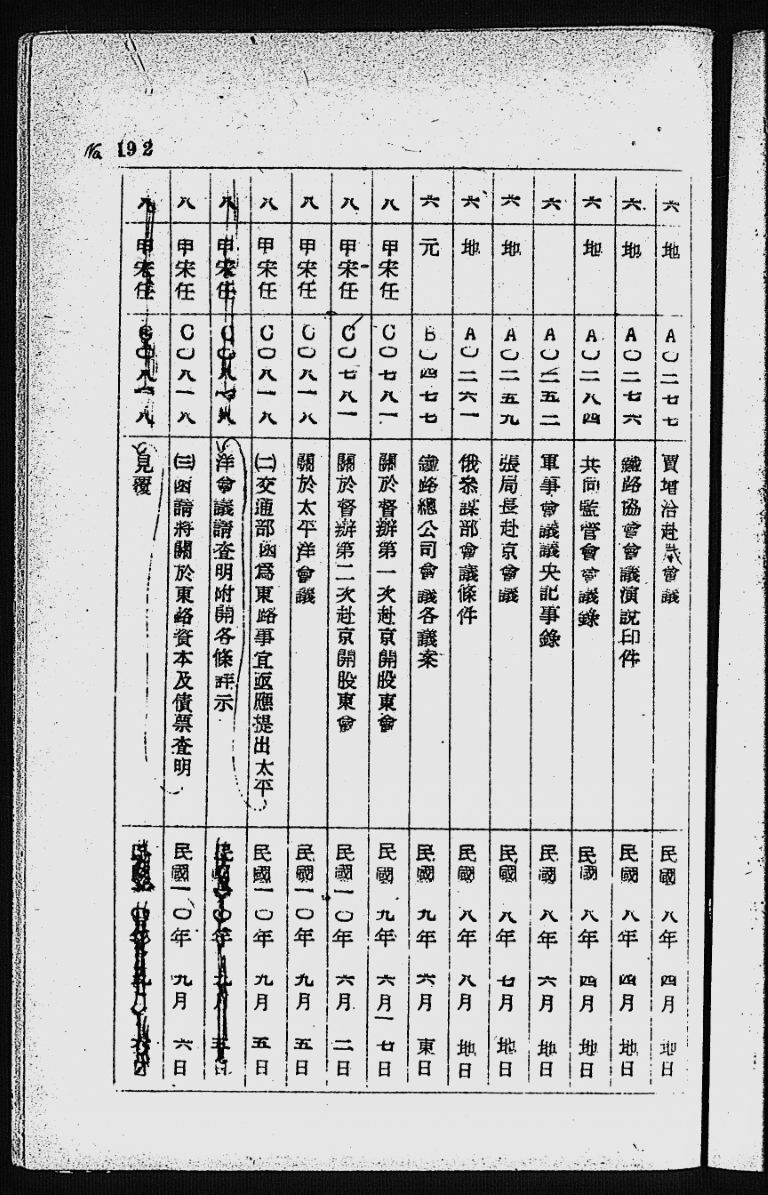 No 192
六 地 A〇二七七 賈 治赴 會議 民國 八年 四月 地日
六 地 A〇二七六 鐵路協會會議演說印件 民國 八年 四月 地日
六 地 A〇二八四 共同監管會會議錄 民國 八年 四月 地日
六 A〇二五二 軍事會議議央記事錄 民國 八年 六月 地日
六 地 A〇二五九 張局長赴京會議 民國 八年 七月 地日
六 地 A〇二六一 俄參謀部會議條件 民國 八年 八月 地日
六 元 B〇四七七 鐵路總公司會議各議案 民國 九年 六月 東日
八 甲宋任 C〇七八一 關於督辦第一次赴京開股東會 民國 九年 六月一七日
八 甲宋任 C〇七八一 關於督辦第二次赴京開股東會 民國一〇年 六月 二日
八 甲宋任 C〇八一八 關於太平洋會議 民國一〇年 九月 五日
八 甲宋任 C〇八一九 ㈡交通部函爲東路事宜亟應提出太平 民國一〇年 九月 五日
八 甲宋任 洋會議請查明附開各條詳示 民國一〇年 九月 五日
八 甲宋任 C〇八一八 ㈢函請將關於東路資本及債票查明 民國一〇年 九月 六日
甲宋任 見覆